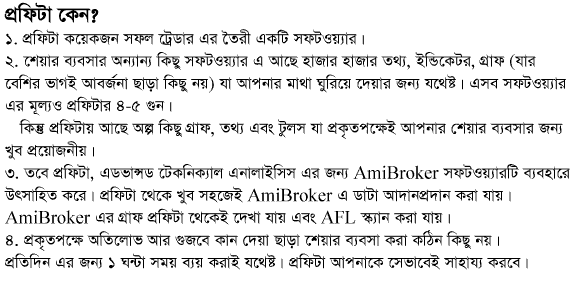 প্রফিটা কেন?
১. প্রফিটা কয়েকজন সফল ট্রেডার এর তৈরী একটি সফটওয়্যার।
২. শেয়ার ব্যবসার অন্যান্য কিছু সফটওয়্যার এ আছে হাজার হাজার তথ্য, ইন্ডিকেটর, গ্রাফ (যার
বেশির ভাগই আবর্জনা ছাড়া কিছু নয়) যা আপনার মাথা ঘুরিয়ে দেয়ার জন্য যথেষ্ট। এসব সফটওয়্যার
এর মূল্যও প্রফিটার ৪-৫ গুন।
কিন্তু প্রফিটায় আছে অল্প কিছু গ্রাফ, তথ্য এবং টুলস যা প্রকৃতপক্ষেই আপনার শেয়ার ব্যবসার জন্য
খুব প্রয়োজনীয়।
৩. তবে প্রফিটা, এডভান্সড টেকনিক্যাল এনালাইসিস এর জন্য AmiBroker সফটওয়্যারটি ব্যবহারে
উৎসাহিত করে। প্রফিটা থেকে খুব সহজেই AmiBroker এ ডাটা আদানপ্রদান করা যায়।
AmiBroker এর গ্রাফ প্রফিটা থেকেই দেখা যায় এবং AFL স্ক্যান করা যায়।
৪. প্রকৃতপক্ষে অতিলোভ আর গুজবে কান দেয়া ছাড়া শেয়ার ব্যবসা করা কঠিন কিছু নয়।
প্রতিদিন এর জন্য ১ ঘন্টা সময় ব্যয় করাই যথেষ্ট। প্রফিটা আপনাকে সেভাবেই সাহায্য করবে।